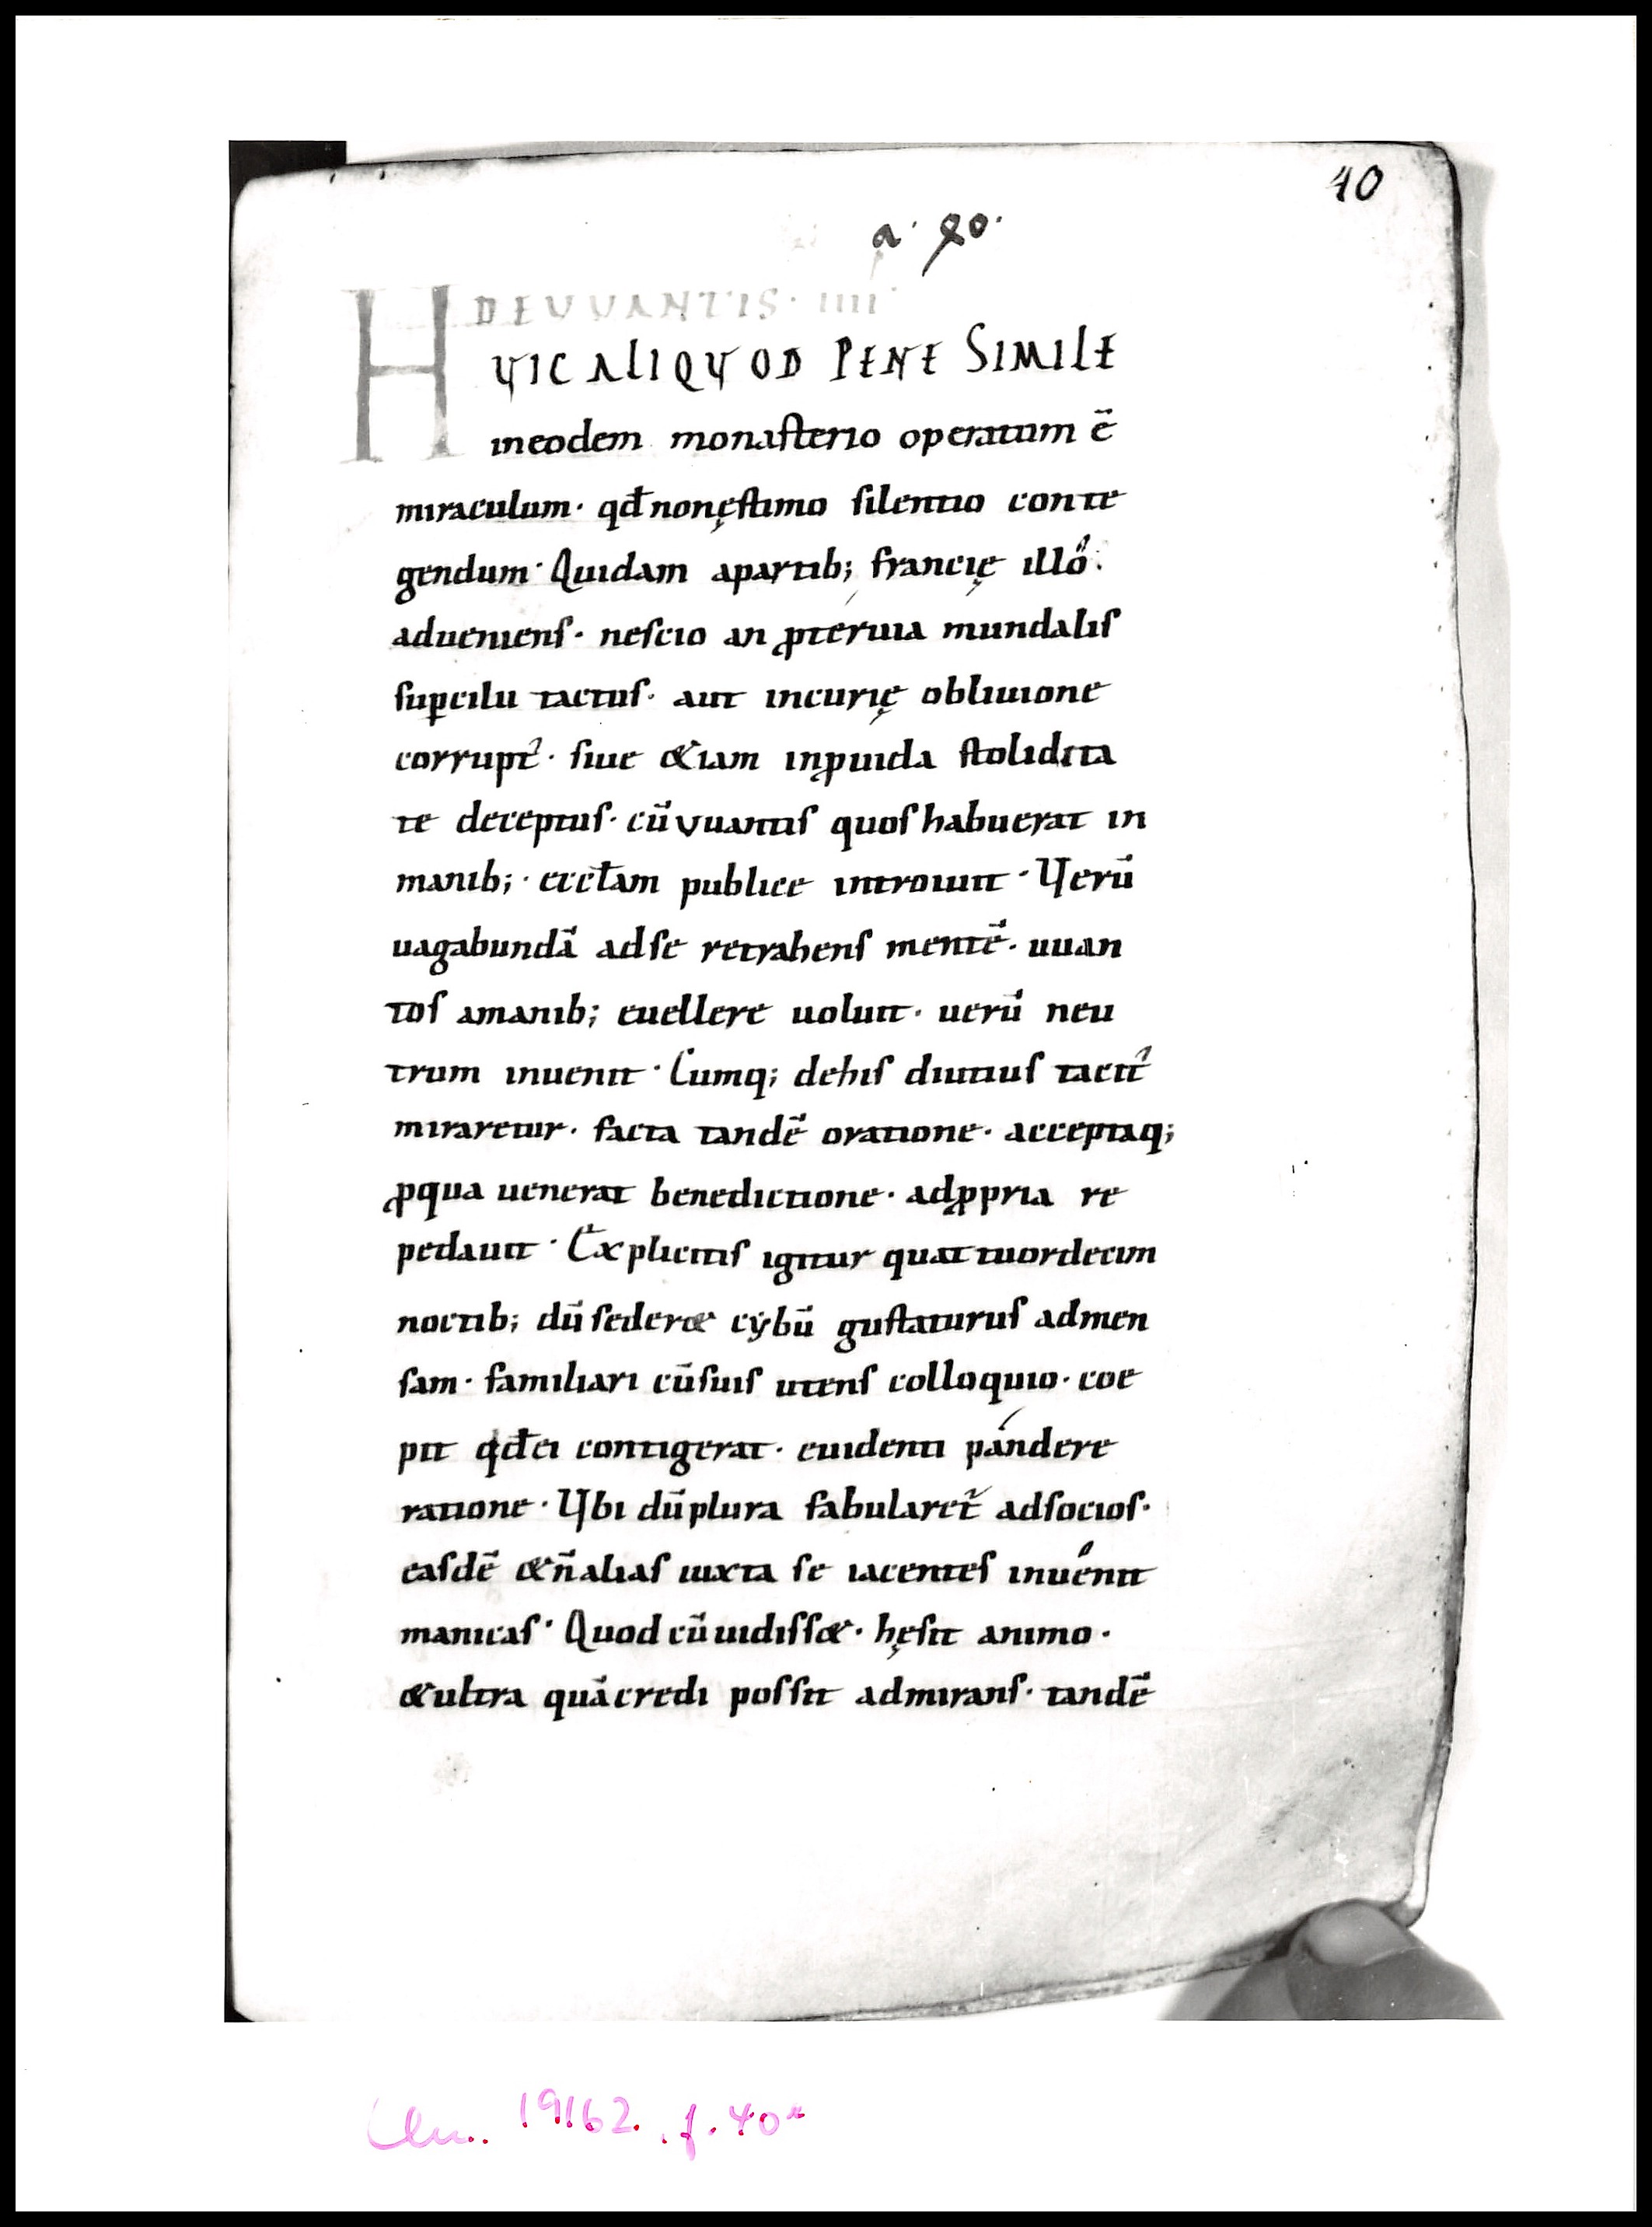 40
a · 40 ·
DE VVANTIS · IIII ·
HVIC ALIQVOD PENE SIMILE
ineodem monasterio operatum ē
miraculum · qđ nonęstimo silentio conte
gendum · Quidam apartib; francię illo .
adueniens · nescio an ꝓteruia mundalis
suꝑcilii tactus · aut incurię obliuione
corrupt᾿ · siue &iam inꝓuida stolidita
te deceptus · cū vuantis quos habuerat in
manib; · ęccłam publice introiuit · Verū
uagabundā adse retrahens mentē · uuan
tos amanib; euellere uoluit · uerū neu
trum inuenit · Cumq; dehis diutius tacit᾿
miraretur · facta tandē oratione · acceptaq;
ꝓqua uenerat benedictione · adꝓpria re
pedauit · Explicitis igitur quattuordecim
noctib; dū seder& cẏbū gustaturus admen
sam · familiari cūsuis utens colloquio · coe
pit qđei contigerat · euidenti pándere
ratione · Vbi dūplura fabularet᾿ adsocios ·
easdē &n̄alias iuxta se iacentes inuenit
manicas · Quod cūuidiss& · hęsit animo ·
&ultra quācredi possit admirans · tandē
Clm. 19162. f. 40r